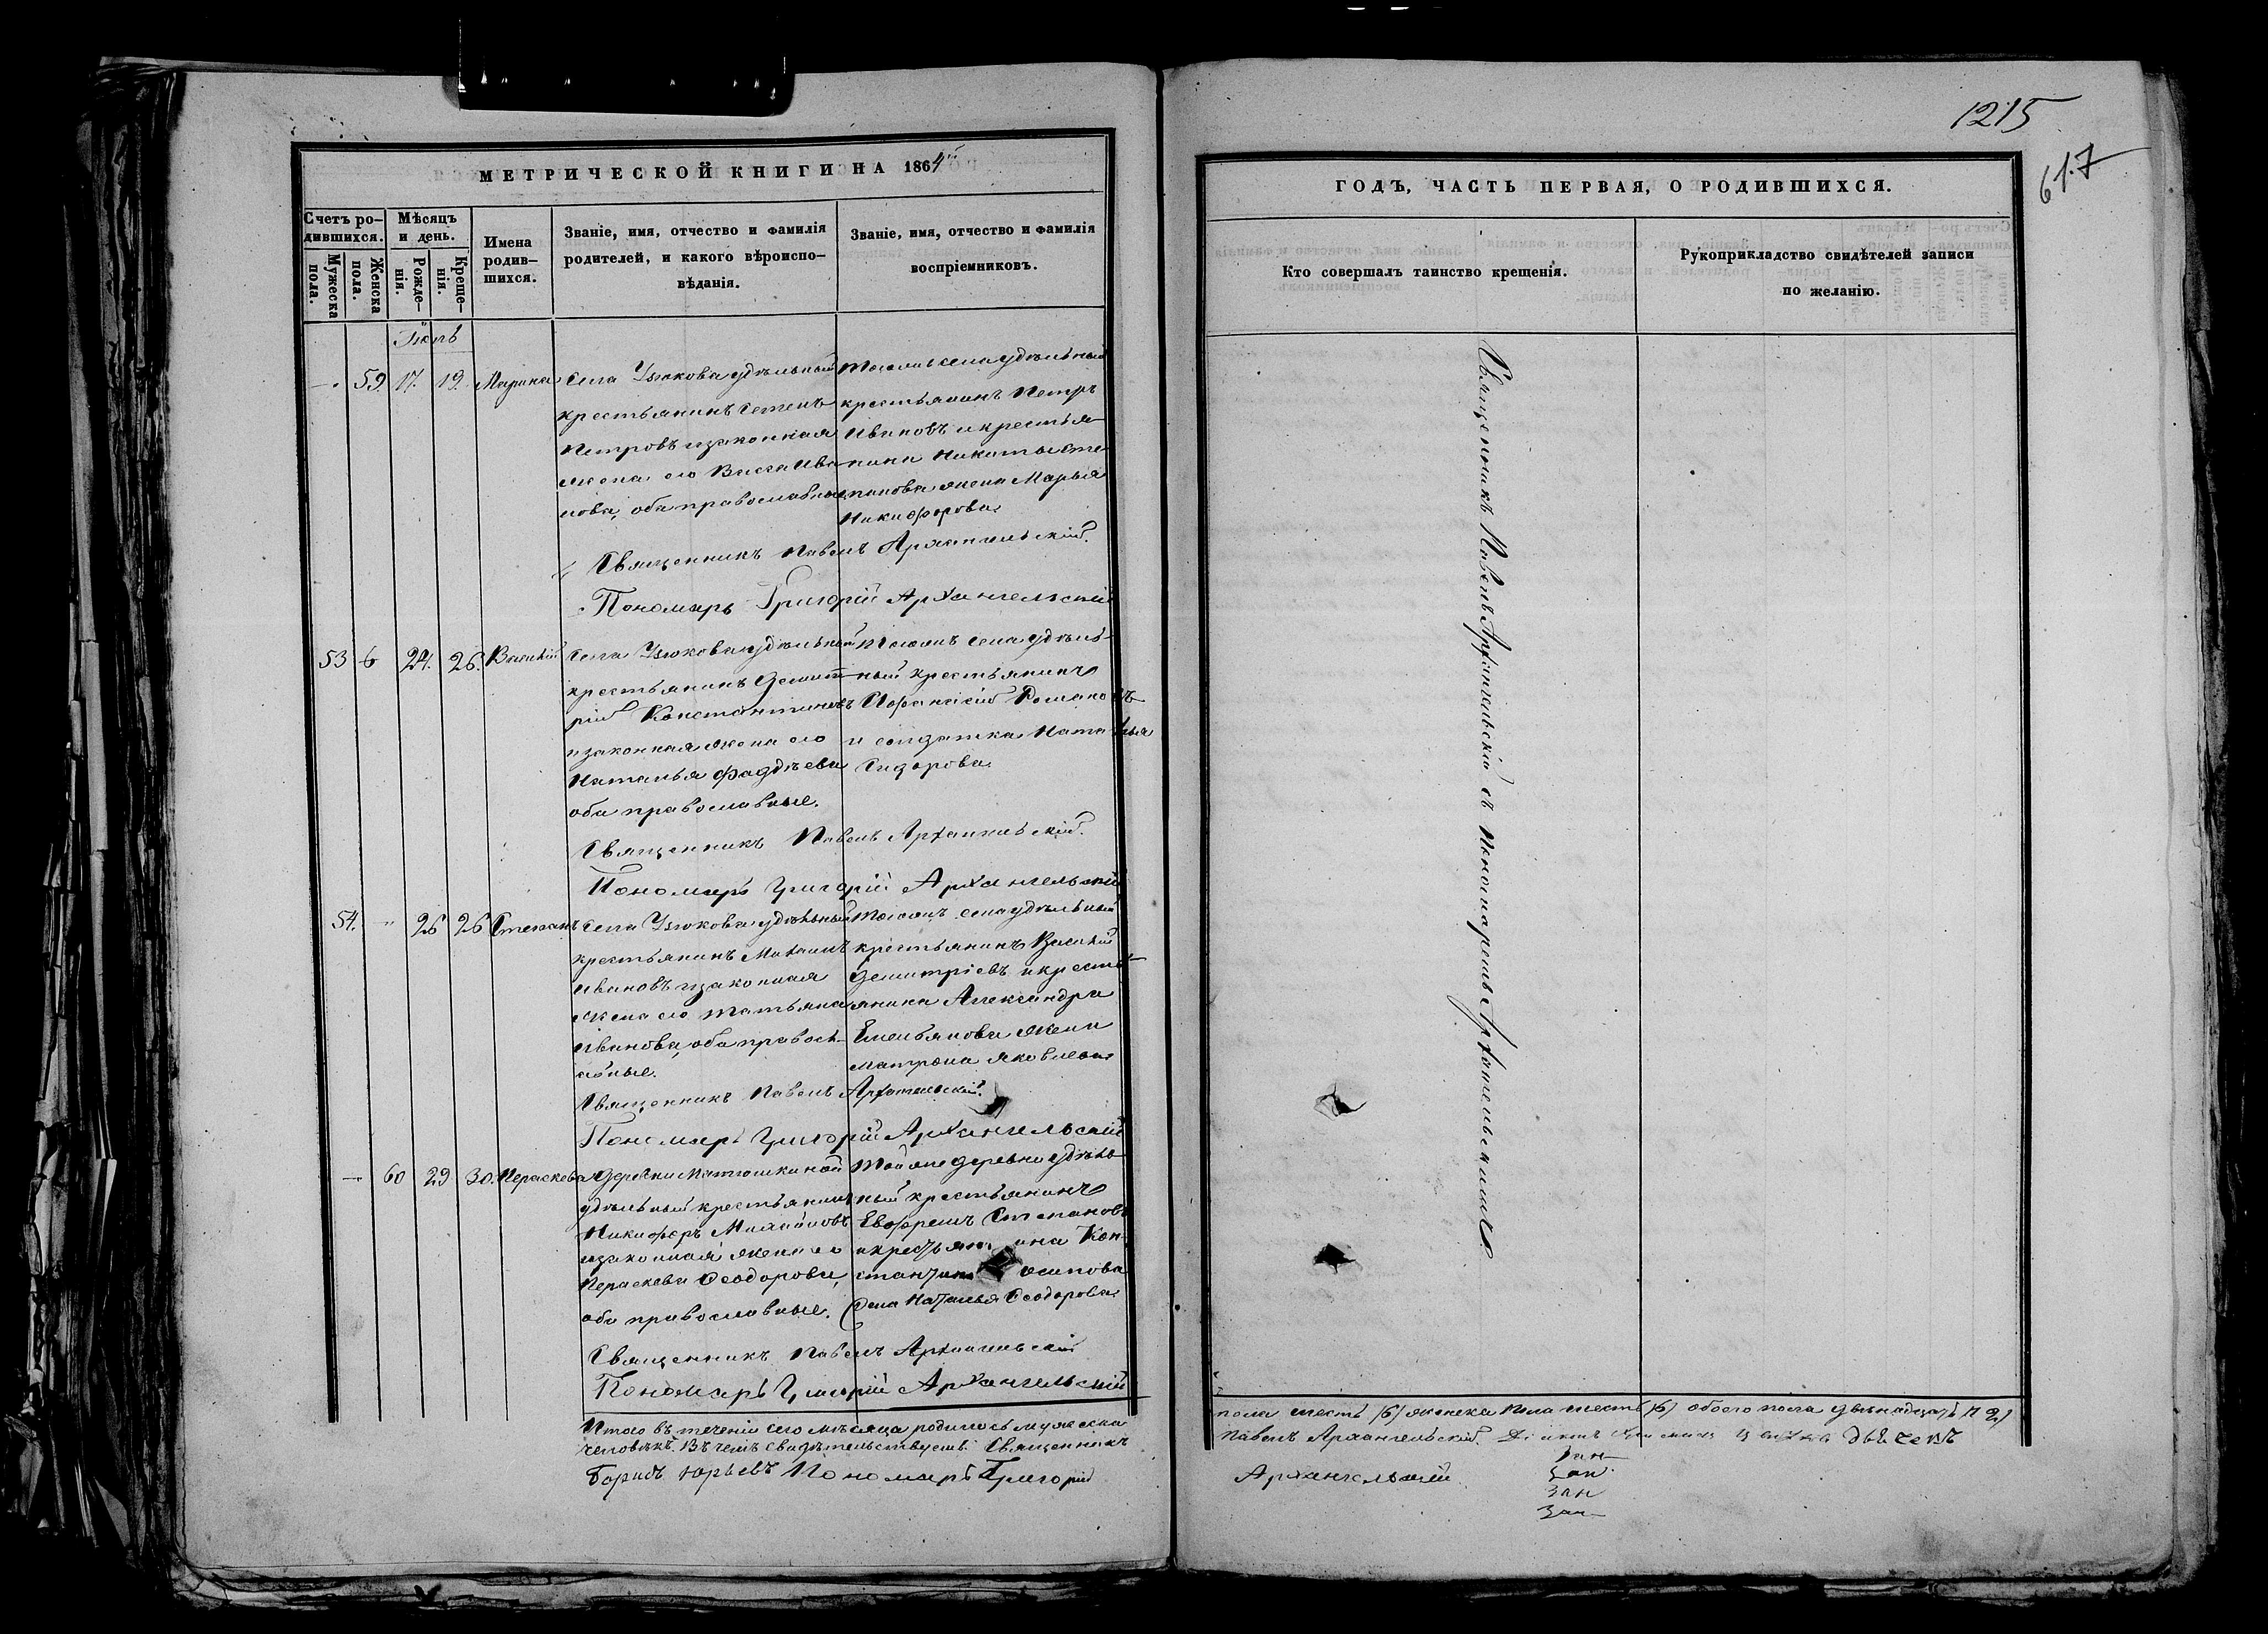 1215
617
МЕТРИЧЕСКОЙ КНИГИ НА 1864
ГОДЪ, ЧАСТЬ ПЕРВАЯ, О РОДИВШИХСЯ.
Счетъ родившихся.
Мужеска пола.
Женска пола.
Мѣсяцъ и день.
Рожденія.
Крещенія.
Имена родившихся.
Званіе, имя, отчество и фамилія
родителей, и какого вѣроиспо-
вѣданія.
Званіе, имя, отчество и фамилія
воспріемниковъ.
Кто совершалъ таинство крещенія.
Рукоприкладство свидѣтелей записи
по желанію.
Іюль
59 17. 19. Марина
Села Узюкова удѣльный
крестьянинъ Степанъ
Петровъ и законная
жена его Васса Ива-
нова, оба православные
Того же села удѣльный
крестьянинъ Петръ
Ивановъ и крестья-
нина Никиты Сте-
панова жена Марья
Никифорова
Священникъ Павелъ Архангельскій.
Пономарь Григорій Архангельскій
53 24. 26. Василій
Села Узюкова удѣльный
крестьянинъ Димит-
рій Константиновъ
и законная жена его
Наталья Фаддѣева
оба православные.
Того же села удѣль-
ный крестьянинъ
Афанасій Романовъ
и солдатка Наталья
Сидорова
Священникъ Павелъ Архангельскій.
Пономарь Григорій Архангельскій
54. 26 26 Степанъ
Села Узюкова удѣльный
крестьянинъ Михаилъ
Ивановъ и законная
жена его Татьяна
Иванова, оба правосл-
авные.
Того же села удѣльный
крестьянинъ Василій
Димитріевъ и кресть-
янина Александра
Емельянова жена
Матрона Яковлева
Священникъ Павелъ Архангельскій.
Пономарь Григорій Архангельскій
60 29 30. Параскева
Деревни Матюшкиной
удѣльный крестьянинъ
Никифоръ
и законная жена его
Параскева Ѳеодорова,
оба православные.
Той же деревни удѣль-
ный крестьянинъ
Ефремъ Степановъ
и крестьянина Кон-
стантина Осипова
жена Наталья Ѳеодорова
Священникъ Павелъ Архангельскій
Пономарь Григорій Архангельскій
Священникъ Павелъ Архангельскій съ Пономаремъ Архангельскимъ.
Итого въ теченіи сего мѣсяца родилось мужеска
пола шесть (6) женска пола шесть (6) обоего пола двѣнадцать (12)
человѣкъ. Въ чемъ свидѣтельствуемъ: Священникъ
Павелъ Архангельскій.
Борисъ Юрьевъ Пономарь Григорій
Архангельскій